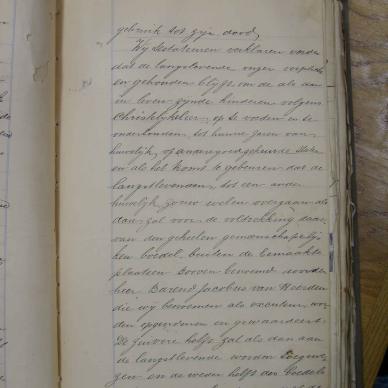 gebruik tot zijn dood,
Wij Testateuren verklaren verder
dat de langstlevende onzer verplicht
en gehouden blijft om de als dan
in leven zijnde kinderen volgens
Christelijkeleer, op te voeden en te
onderhouden, tot hunne jaren van
huwelijk, of andere goedgekeurde staten
en als het komt te gebeuren dat de
langstlevenden, tot een ander
huwelijk zoude willen overgaan als
dan zal voor de voltrekking daar
van den geheelen gemeenschappelij
ken boedel, buiten de Gemaakte
plaatsen boven benoemd worden
heer Barend Jacobus van Heerden
die wij benoemen als executeur, wor
den opgenomen en gewaardeert
De zuivere helft zal als dan aan
de langstlevende worden toegewe
zen en de weder helft den boedels